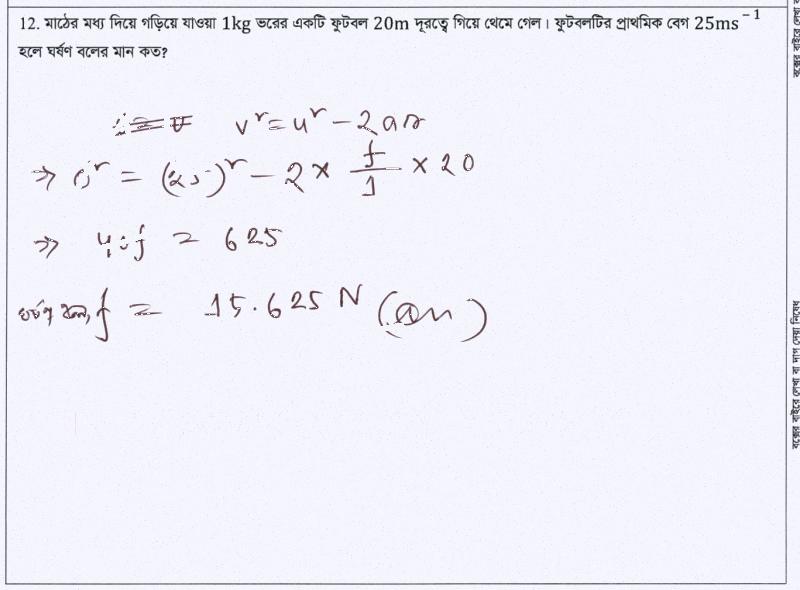 12. মাঠের মধ্য দিয়ে গড়িয়ে যাওয়া 1kg ভরের একটি ফুটবল 20m দূরত্বে গিয়ে থেমে গেল। ফুটবলটির প্রাথমিক বেগ 25ms⁻¹
হলে ঘর্ষণ বলের মান কত?
v² = u² − 2as
⇒ 0² = (25)² − 2 × f/1 × 20
⇒ 40f = 625
ঘর্ষণ বল, f = 15.625 N (Ans)
বক্সের বাইরে লেখা বা দাগ দেয়া নিষেধ